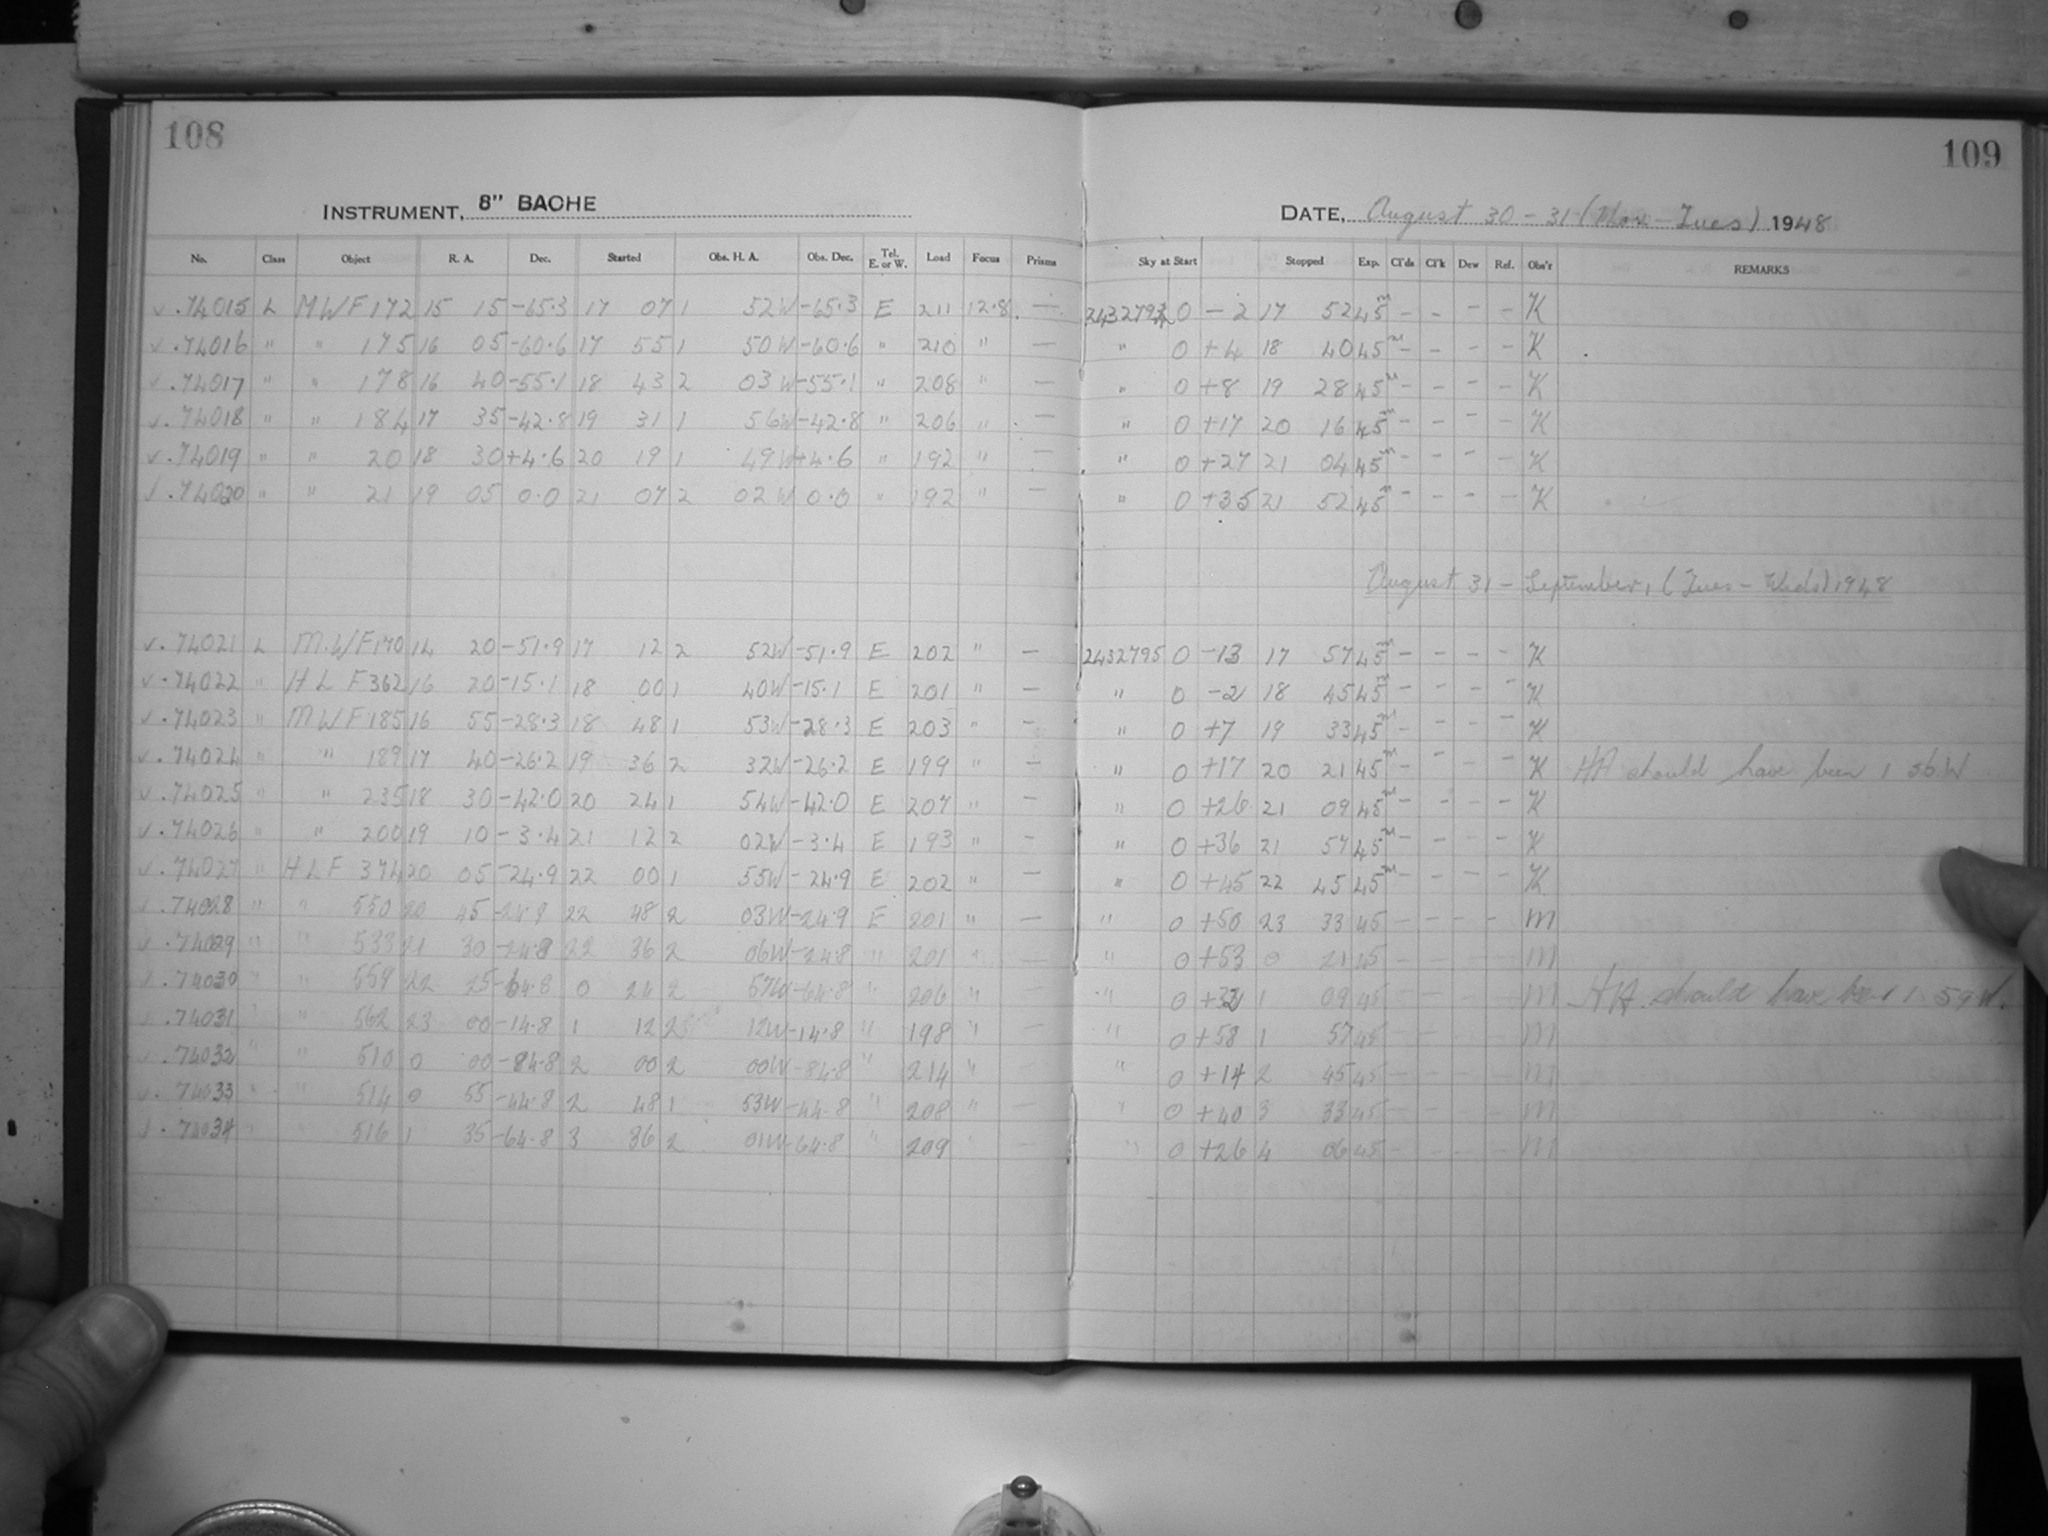 108
109
INSTRUMENT, 8" BACHE
DATE, August 30 - 31 (Mon - Tues) 1948
No. Class Object R. A. Dec. Started Obs. H. A. Obs. Dec. Tel. E. or W. Load Focus Prisms Sky at Start Stopped Exp. Cl'ds Cl'k Dew Ref. Obs'r REMARKS
v .74015 L MWF 172 15 15 -65.3 17 07 1 52W -65.3 E 211 12.8 — 0 - 2 17 52 45m - - - - K
v .74016 " " 175 16 05 -60.6 17 55 1 50W -60.6 " 210 " — " 0 +4 18 40 45m - - - - K
v .74017 " " 178 16 40 -55.1 18 43 2 03W -55.1 " 208 " — " 0 +8 19 28 45m - - - - K
v .74018 " " 184 17 35 -42.8 19 31 1 56W -42.8 " 206 " — " 0 +17 20 16 45m - - - - K
v .74019 " " 20 18 30 +4.6 20 19 1 49W +4.6 " 192 " — " 0 +27 21 04 45m - - - - K
v .74020 " " 21 19 05 0.0 21 07 2 02W 0.0 " 192 " — " 0 +35 21 52 45m - - - - K
August 31 - September 1, (Tues - Weds) 1948
v .74021 L M.W F 170 14 20 -51.9 17 12 2 52W -51.9 E 202 " — 2432795 0 -13 17 57 45m - - - - K
v .74022 " H L F 362 16 20 -15.1 18 00 1 40W -15.1 E 201 " — " 0 -2 18 45 45m - - - - K
v .74023 " MWF 185 16 55 -28.3 18 48 1 53W -28.3 E 203 " — " 0 +7 19 33 45m - - - - K
v .74024 " " 189 17 40 -26.2 19 36 2 32W -26.2 E 199 " — " 0 +17 20 21 45m - - - - K HA should have been 1 56W
v .74025 " " 235 18 30 -42.0 20 24 1 54W -42.0 E 207 " — " 0 +26 21 09 45m - - - - K
v .74026 " " 200 19 10 -3.4 21 12 2 02W -3.4 E 193 " — " 0 +36 21 57 45m - - - - K
v .74027 " HLF 374 20 05 -24.9 22 00 1 55W -24.9 E 202 " — " 0 +45 22 45 45m - - - - K
v .74028 " " 550 20 45 -24.9 22 48 2 03W -24.9 E 201 " — " 0 +50 23 33 45 - - - - M
v .74029 " " 533 21 30 -24.8 22 36 2 06W -24.8 " 201 " — " 0 +53 0 21 45 - - - - M
v .74030 " " 559 22 25 -64.8 0 24 2 57W -64.8 " 206 " — " 0 1 09 45 - - - - M HA should have been 1 59W.
v .74031 " " 562 23 00 -14.8 1 12 12W -14.8 " 198 " — " 0 +58 1 57 45 - - - - M
v .74032 " " 510 0 00 -84.8 2 00 2 00W -84.8 " 214 " — " 0 +14 2 45 45 - - - - M
v .74033 " " 514 0 55 -44.8 2 48 1 53W -44.8 " 208 " — " 0 +40 3 33 45 - - - - M
v .74034 " " 516 1 35 -64.8 3 36 2 01W -64.8 " 209 " — " 0 +26 4 06 45 - - - - M